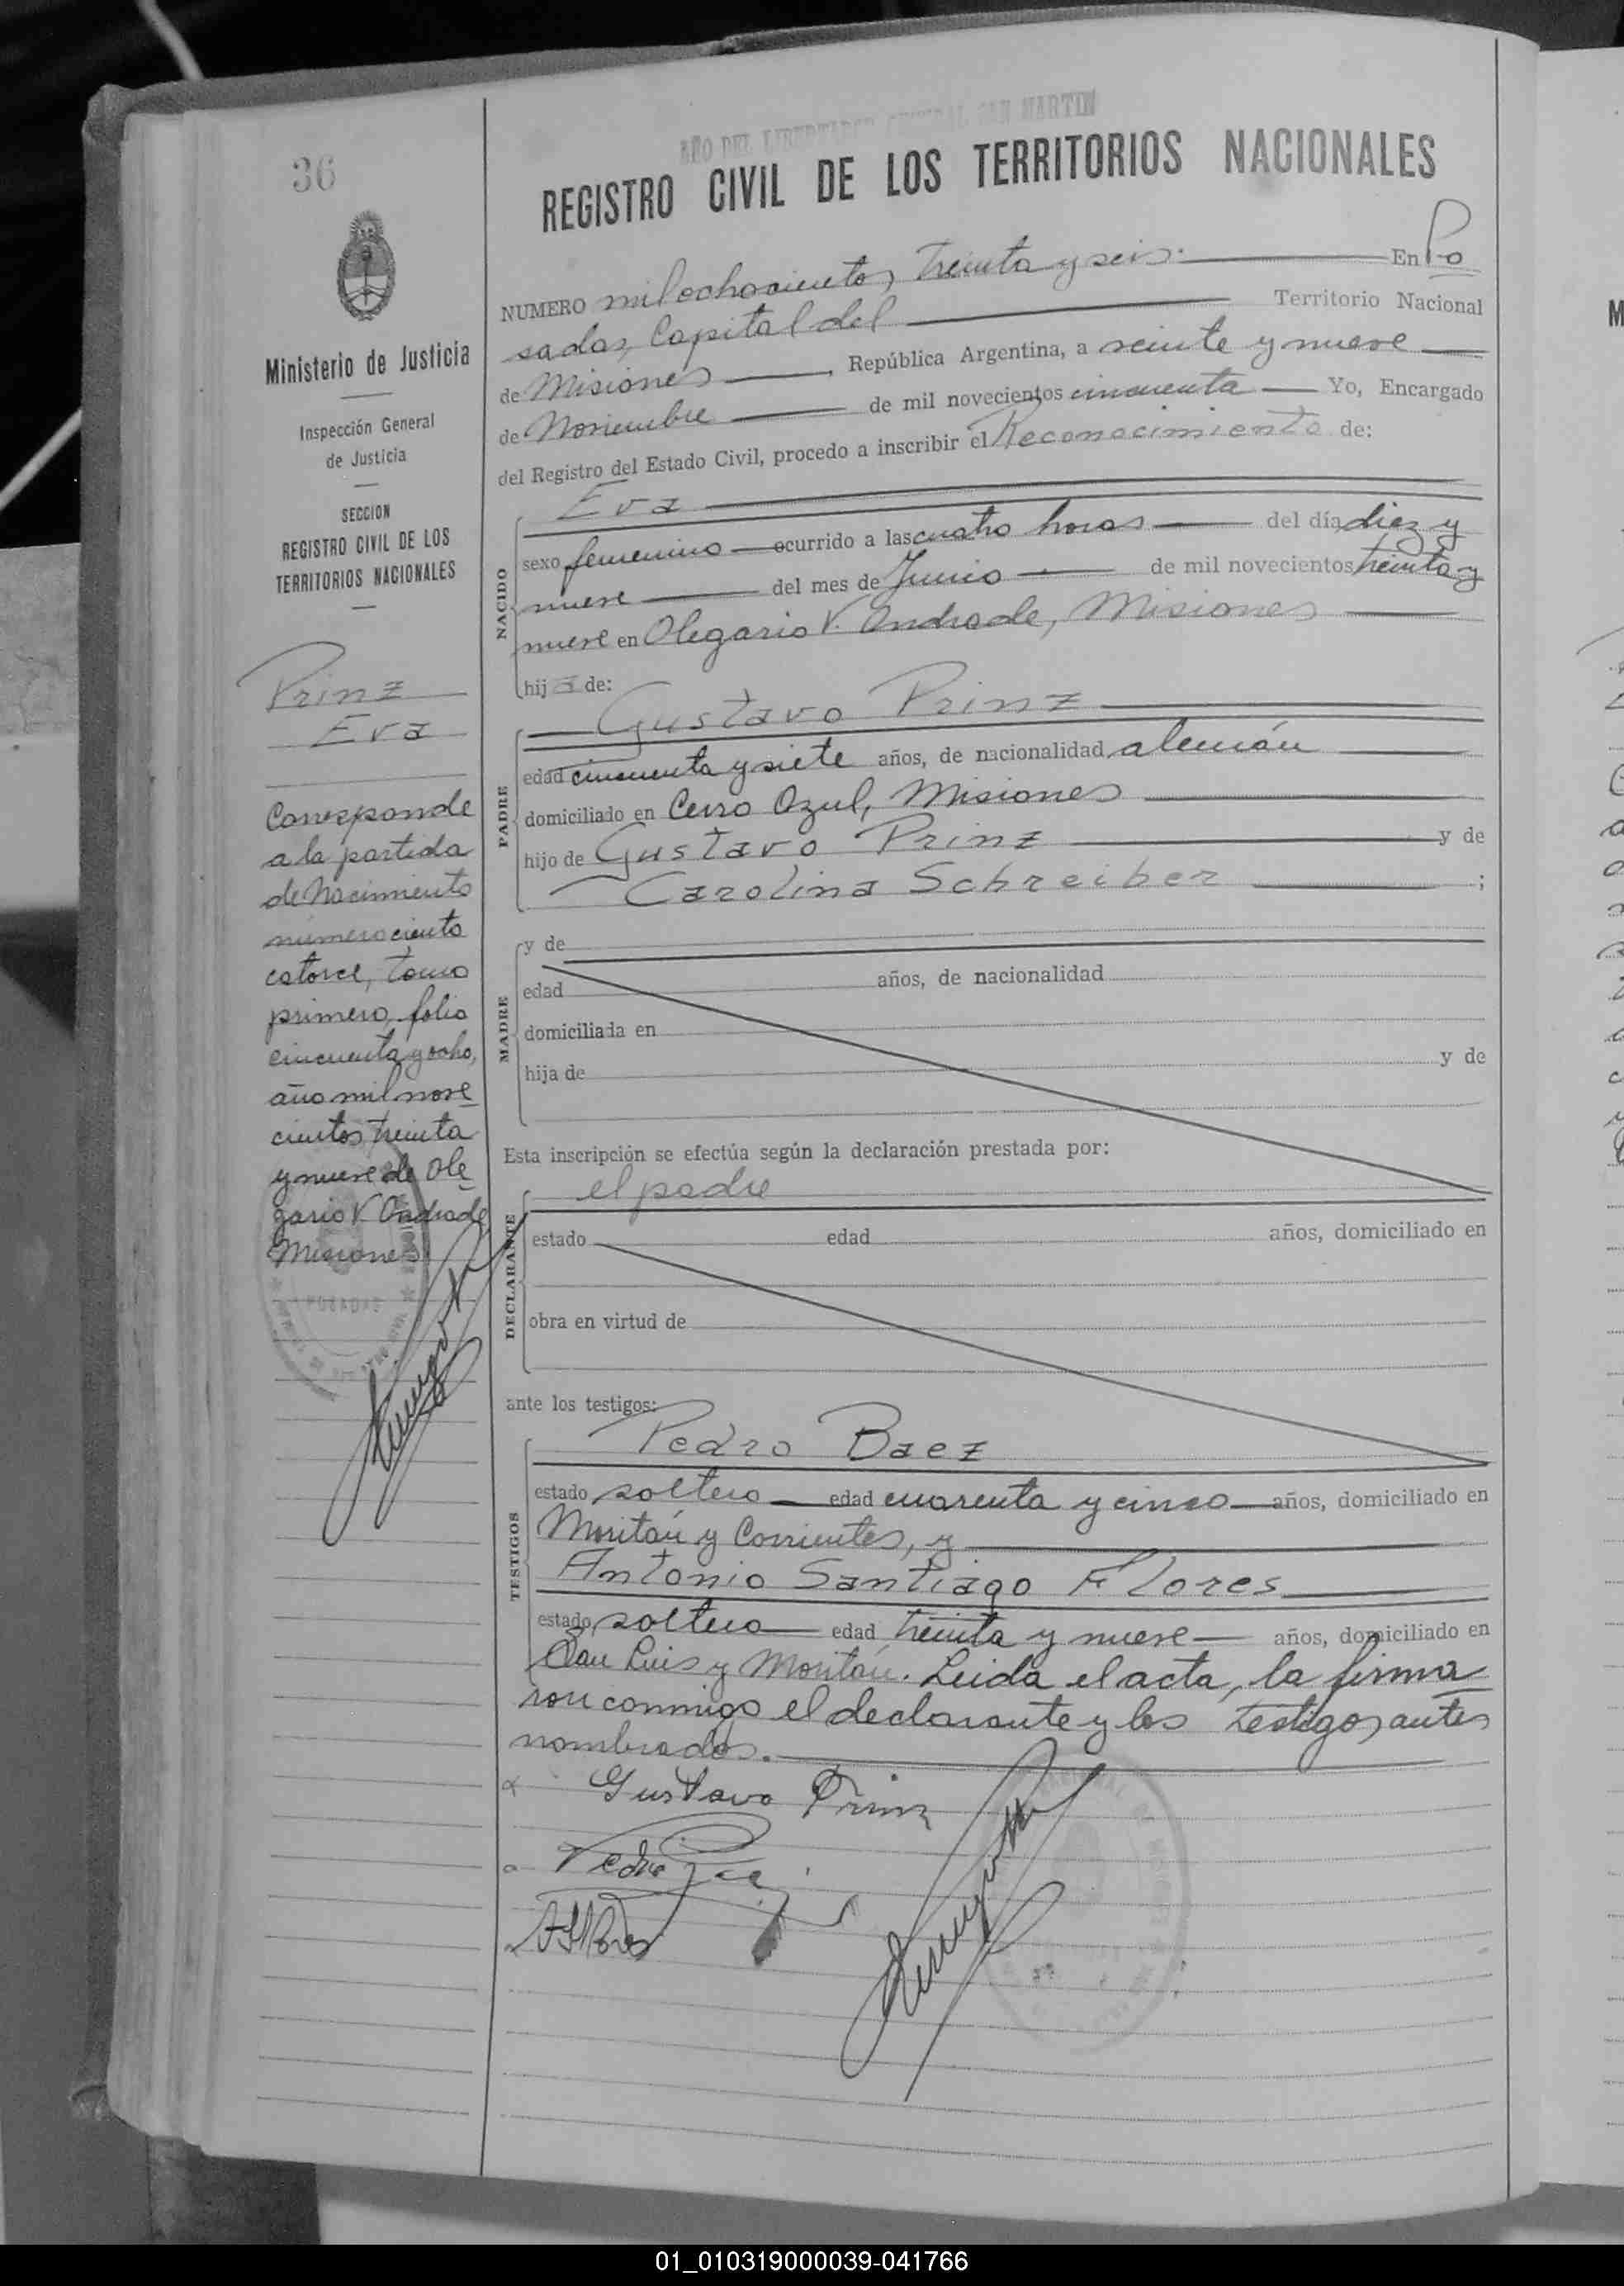 36
AÑO DEL LIBERTADOR GENERAL SAN MARTIN
REGISTRO CIVIL DE LOS TERRITORIOS NACIONALES
Ministerio de Justicia
Inspección General
de Justicia
SECCION
REGISTRO CIVIL DE LOS
TERRITORIOS NACIONALES
Prinz
Eva
Corresponde
a la partida
de Nacimiento
número ciento
catorce, tomo
primero, folio
cincuenta y ocho,
año mil nove
cientos treinta
y nueve de Ole
gario V. Andrade
Misiones
POSADAS
NUMERO mil ochocientos treinta y seis. En Po
sadas, Capital del Territorio Nacional
de Misiones, República Argentina, a veinte y nueve
de Noviembre de mil novecientos cincuenta Yo, Encargado
del Registro del Estado Civil, procedo a inscribir el Reconocimiento de:
Eva
NACIDO
sexo femenino ocurrido a las cuatro horas del día diez y
nueve del mes de Junio de mil novecientos treinta y
nueve en Olegario V. Andrade, Misiones
hija de:
Gustavo Prinz
PADRE
edad cincuenta y siete años, de nacionalidad alemán
domiciliado en Cerro Azul, Misiones
hijo de Gustavo Prinz y de
Carolina Schreiber ;
MADRE
y de
edad años, de nacionalidad
domiciliada en
hija de y de
Esta inscripción se efectúa según la declaración prestada por:
el padre
DECLARANTE
estado edad años, domiciliado en
obra en virtud de
ante los testigos:
Pedro Baez
TESTIGOS
estado soltero edad cuarenta y cinco años, domiciliado en
Moritán y Corrientes, y
Antonio Santiago Flores
estado soltero edad treinta y nueve años, domiciliado en
San Luis y Moritán. Leida el acta, la firma
ron conmigo el declarante y los testigos antes
nombrados.
Gustavo Prinz
Pedro Baez
ASFlores
01_010319000039-041766